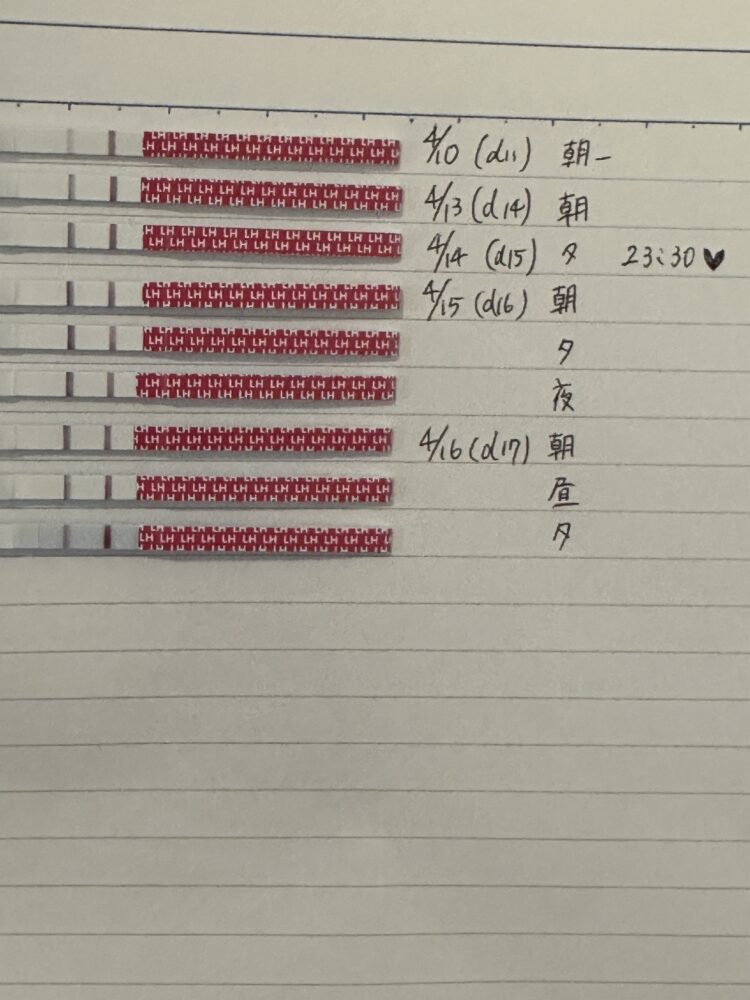 4/10 (d11) 朝一
4/13 (d14) 朝
4/14 (d15) 夕 23:30 ♥
4/15 (d16) 朝
夕
夜
4/16 (d17) 朝
昼
夕